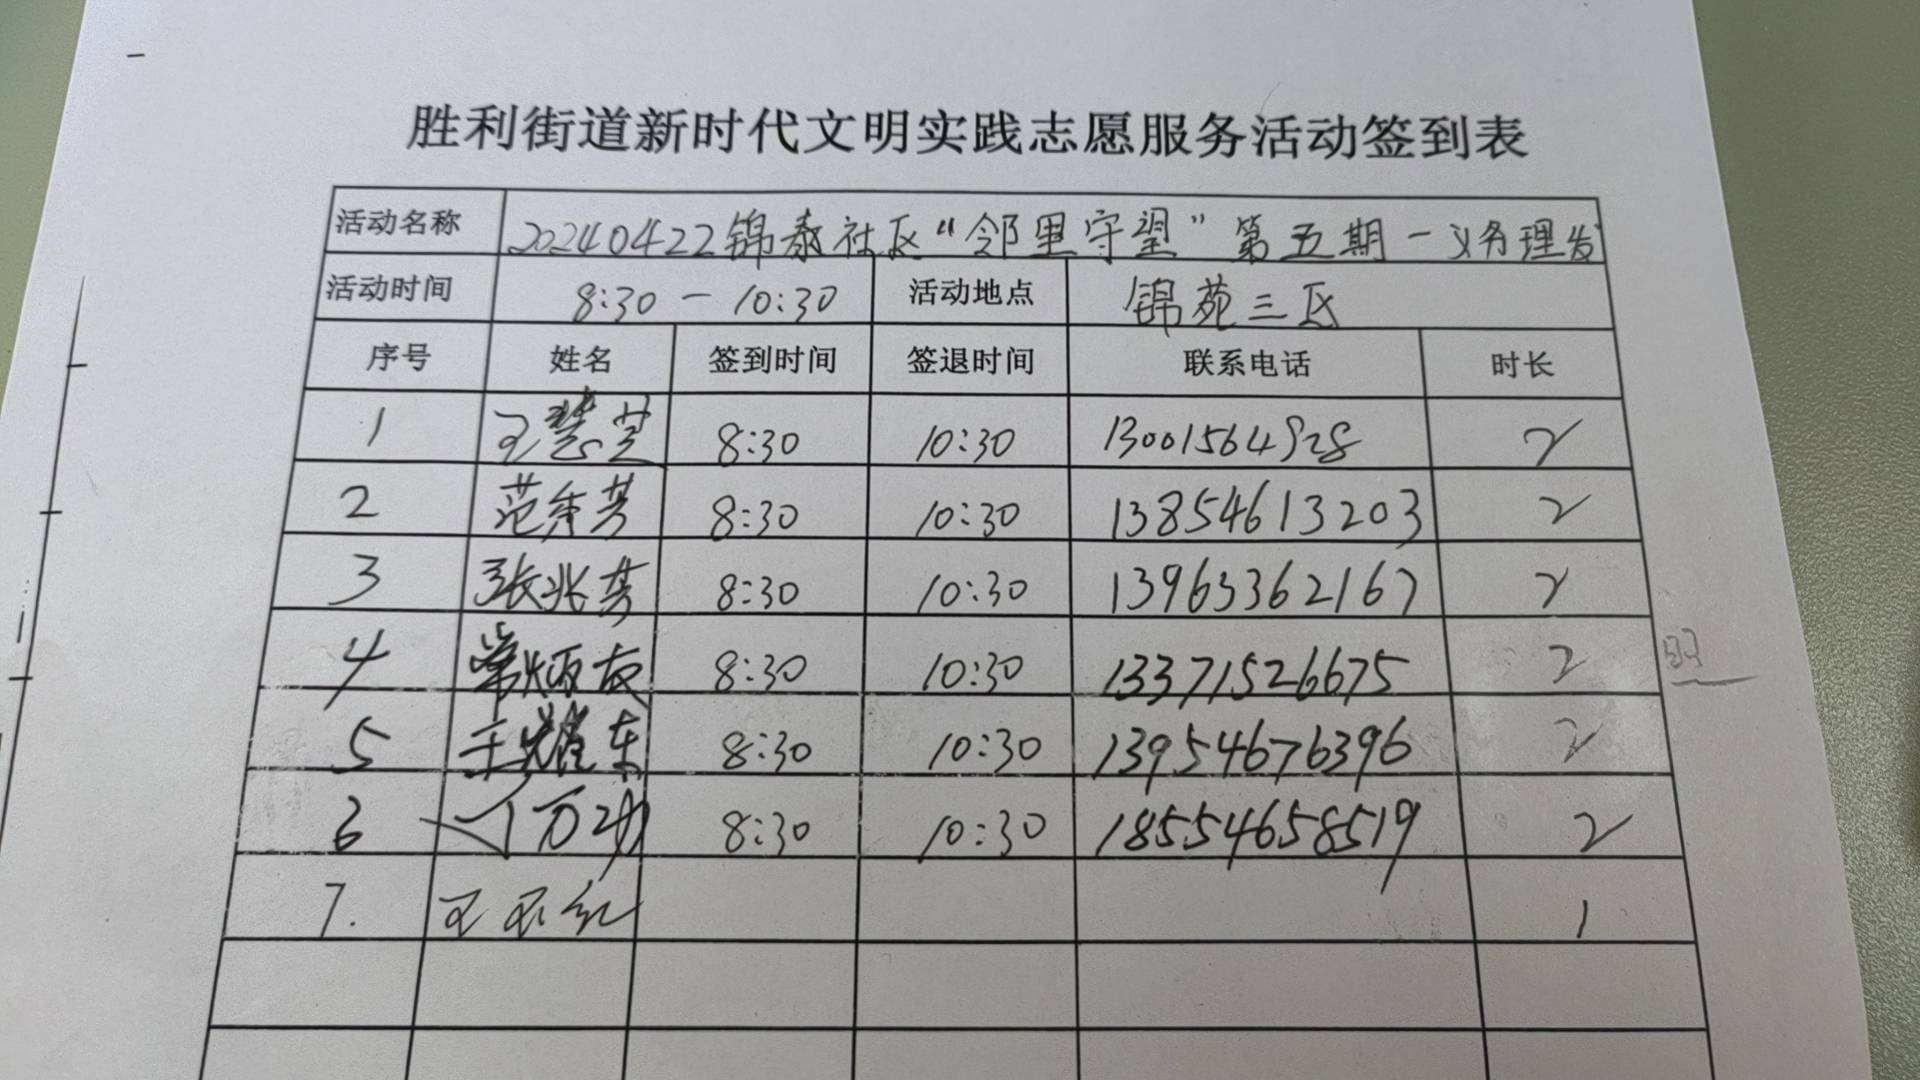 胜利街道新时代文明实践志愿服务活动签到表
活动名称 20240422锦泰社区“邻里守望”第五期-义务理发
活动时间 8:30-10:30 活动地点 锦苑三区
序号 姓名 签到时间 签退时间 联系电话 时长
1 王慧芝 8:30 10:30 13001564928 2
2 范秀芳 8:30 10:30 13854613203 2
3 张兆芳 8:30 10:30 13963362167 2
4 常炳友 8:30 10:30 13371526675 2
5 王耀东 8:30 10:30 13954676396 2
6 万功 8:30 10:30 18554658519 2
7. 王红 1